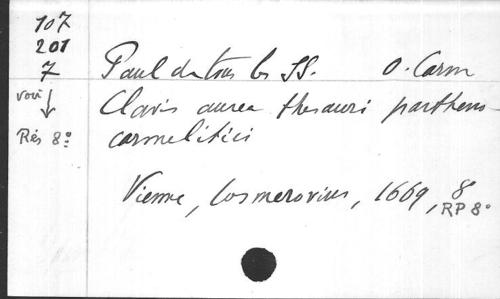 107
201
7 Paul de tous les SS. O. Carm
voir ↓ Clavis aurea thesauri partheno-
Rés 8º carmelitici
Vienne, Cosmerovius, 1669, 8
RP 8º